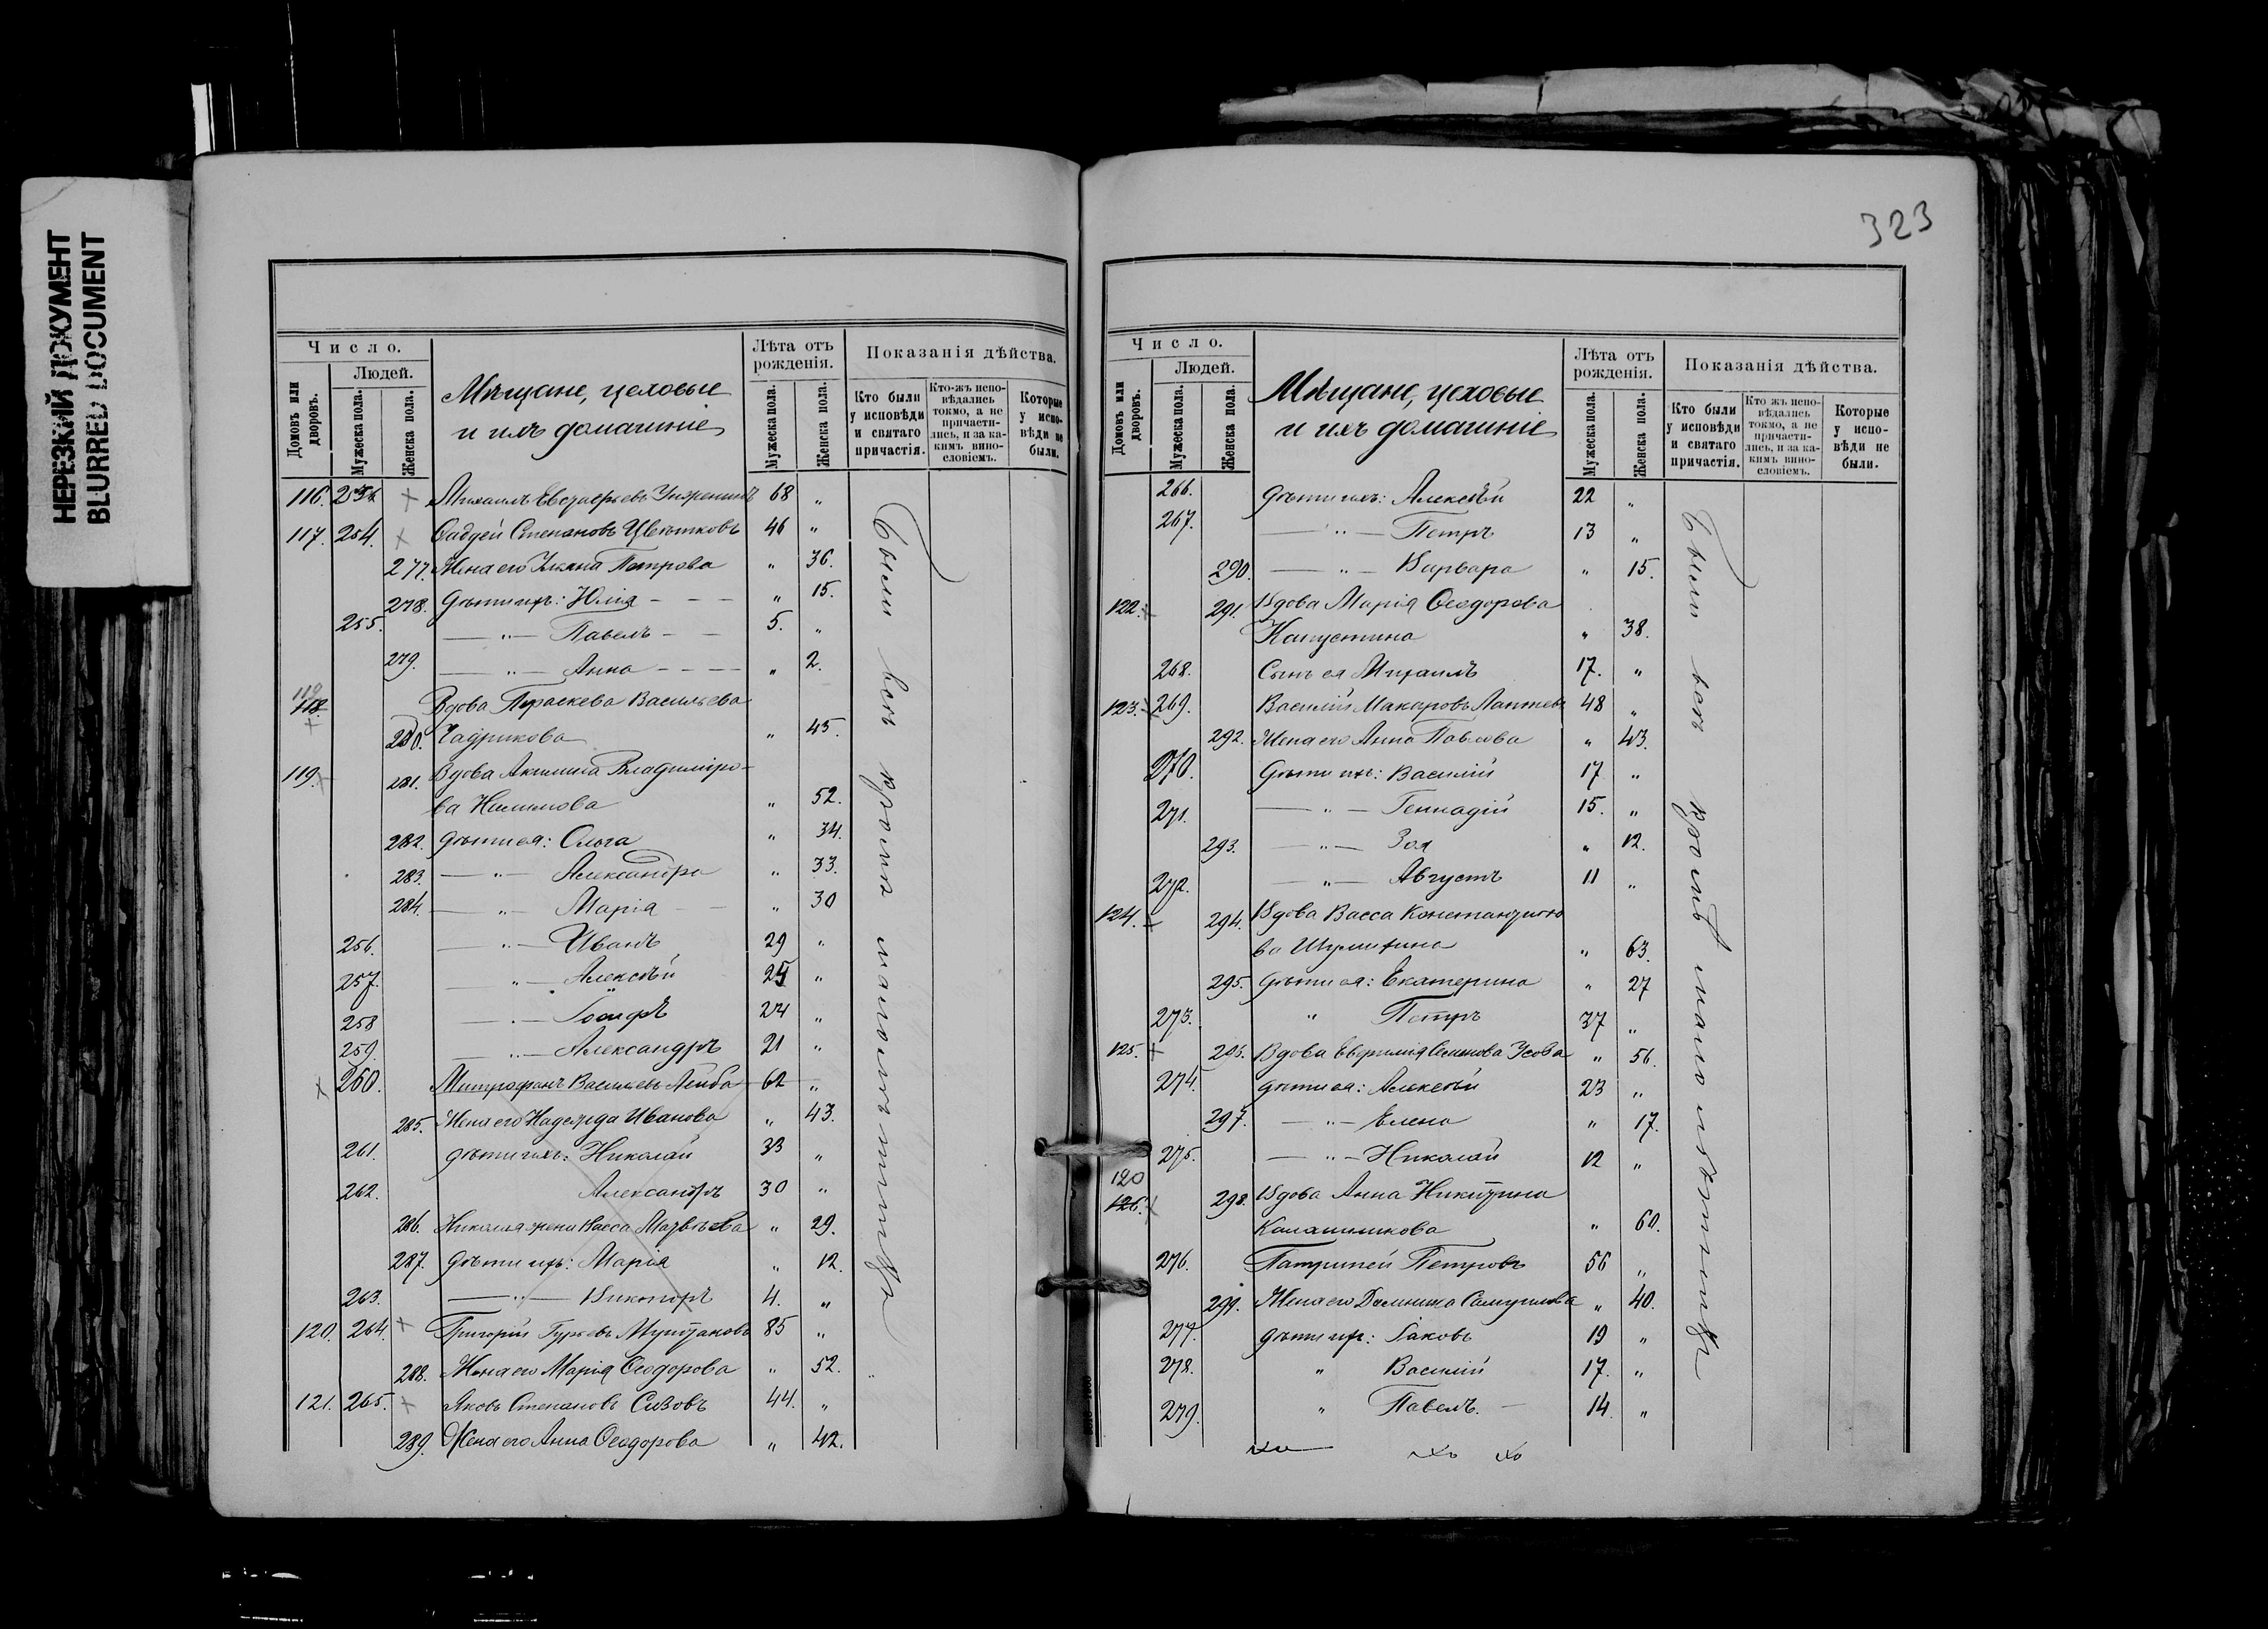 НЕРЕЗКИЙ ДОКУМЕНТ
BLURRED DOCUMENT
Число.
Людей.
Домовъ или дворовъ.
Мужеска пола.
Женска пола.
Мѣщане, цеховые
и ихъ домашніе
Лѣта отъ рожденія.
Мужеска пола.
Женска пола.
Показанія дѣйства.
Кто были у исповѣди и святаго причастія.
Кто-жъ исповѣдались токмо, а не причастились, и за какимъ винословіемъ.
Которые у исповѣди не были.
116. Михаилъ 68 „
117. 254. Фаддей Степановъ Цвѣтковъ 46 „
277. Жена его Петрова „ 36.
278. Дѣти ихъ: Юлія „ 15.
255. — „ — Павелъ 5. „
279. — „ — Анна „ 2.
Вдова Параскева Васильева
280. Чадрикова „ 45.
119. 281. Вдова Акилина Владимiро-
ва „ 52.
282. дѣти ея: Ольга „ 34.
283. — „ — Александра „ 33.
284. — „ — Марія „ 30
256. — „ — Иванъ 29 „
257. — „ — Алексѣй 25 „
258 — „ — Іосифъ 24 „
259. — „ — Александръ 21 „
260. Митрофанъ Васильевъ 62 „
285. Жена его Надежда Иванова „ 43.
261. дѣти ихъ: Николай 33 „
262. Александръ 30 „
286. Николая жена Васса Матвѣева „ 29.
287. дѣти ихъ: Марія „ 12.
263. — „ — Никаноръ 4. „
120. 264. Григорій Гурьевъ 85 „
288. Жена его Марія Ѳеодорова „ 52.
121. 265. Яковъ Степановъ Сизовъ 44. „
289. Жена его Анна Ѳеодорова „ 42.
Были всѣ кромѣ малолѣтнихъ
323
Число.
Людей.
Домовъ или дворовъ.
Мужеска пола.
Женска пола.
Мѣщане, цеховые
и ихъ домашніе
Лѣта отъ рожденія.
Мужеска пола.
Женска пола.
Показанія дѣйства.
Кто были у исповѣди и святаго причастія.
Кто жъ исповѣдались токмо, а не причастились, и за какимъ винословіемъ.
Которые у исповѣди не были.
266. Дѣти ихъ: Алексѣй 22 „
267. — „ — Петръ 13 „
290. — „ — Варвара „ 15.
122. 291. Вдова Марія Ѳеодорова
Капустина „ 38.
268. Сынъ ея Михаилъ 17. „
123. 269. Василій Макаровъ Лаптевъ 48 „
292. Жена его Анна Павлова „ 43.
270. Дѣти ихъ: Василій 17 „
271. — „ — Геннадій 15. „
293. — „ — Зоя „ 12.
272. — „ — Августъ 11 „
124. 294. Вдова Васса Константино-
ва „ 63.
295. Дѣти ея: Екатерина „ 27
273. „ Петръ 37 „
125. Вдова Евфимія Семенова Усова „ 56.
274. дѣти ея: Алексѣй 23 „
297. — „ — Елена „ 17.
275. — „ — Николай 12 „
120
126. 298. Вдова Анна Никитина
Калашникова „ 60.
276. Патрикей Петровъ 56 „
299. Жена его Домника Самуилова „ 40.
277. дѣти ихъ: Іаковъ 19 „
278. „ Василій 17. „
279. „ Павелъ. 14. „
Были всѣ кромѣ малолѣтнихъ